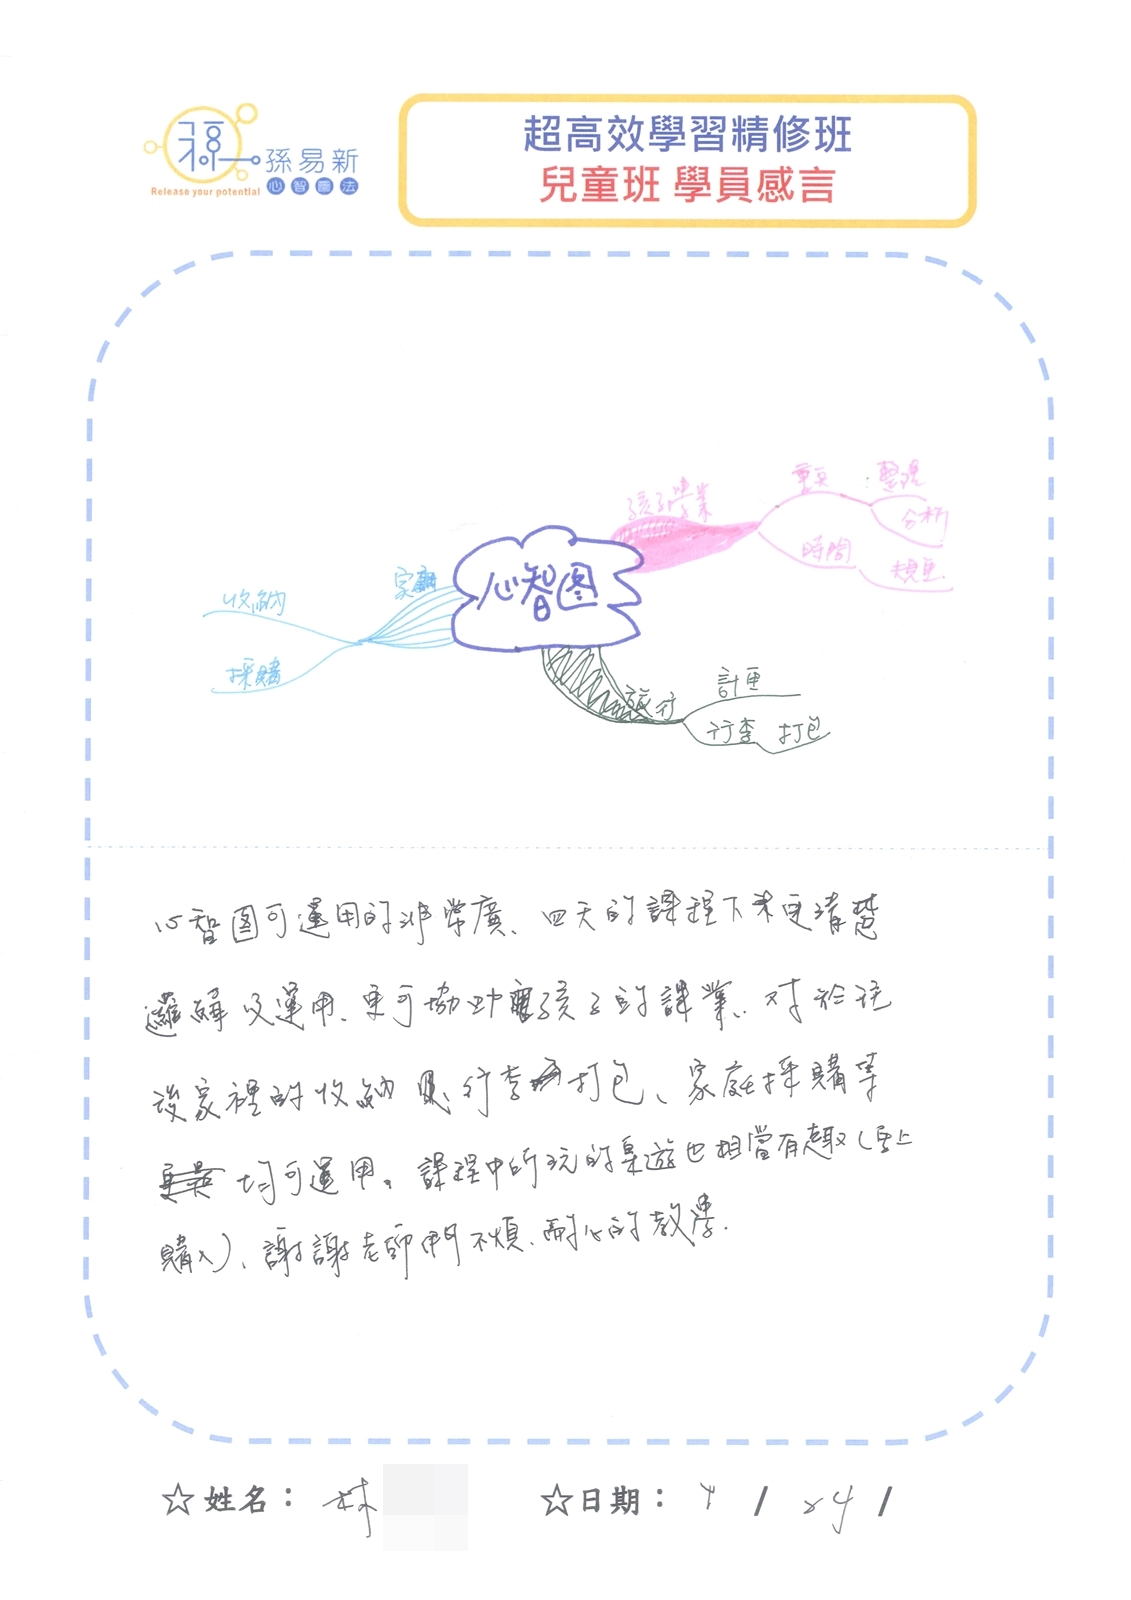 孫易新
心智圖法
Release your potential
超高效學習精修班
兒童班 學員感言
孩子學業
重點
整理
分析
時間
規畫
心智图
家庭
收納
採購
旅行
計画
行李 打包
心智图可運用的非常廣、四天的課程下來更清楚
邏輯及運用、更可協助孩子的課業、對於往
後家裡的收納及行李打包、家庭採購等
均可運用。課程中所玩的桌遊也相當有趣(馬上
購入)、謝謝老師們不煩、耐心的教學.
☆姓名： 林
☆日期： / 24 /